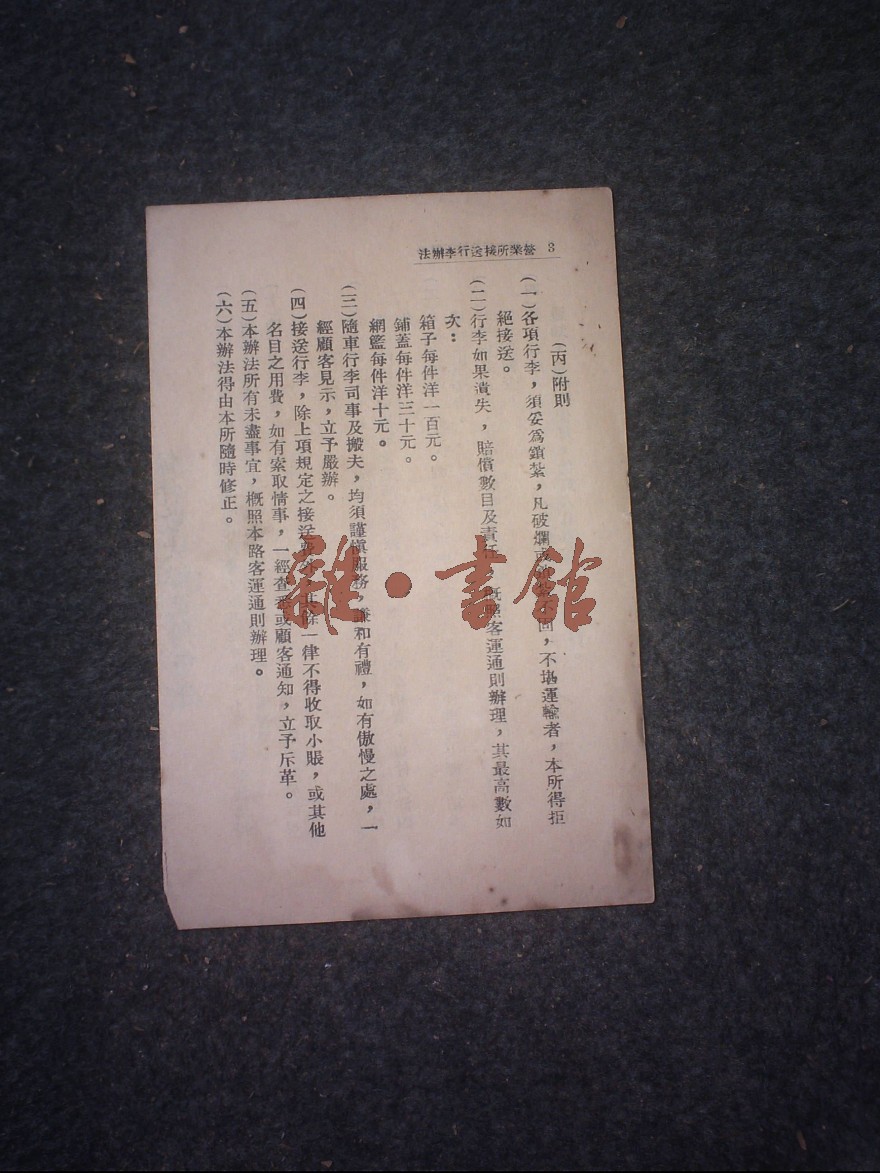 營業所接送行李辦法 3
(丙)附則
(一)各項行李，須妥為鎖紮，凡破爛或 回，不堪運輸者，本所得拒
絕接送。
(二)行李如果遺失，賠償數目及責任 概照客運通則辦理，其最高數如
次：
箱子每件洋一百元。
鋪蓋每件洋三十元。
網籃每件洋十元。
(三)隨車行李司事及搬夫，均須謹愼服務，謙和有禮，如有傲慢之處，一
經顧客見示，立予嚴辦。
(四)接送行李，除上項規定之接送 其餘一律不得收取小賬，或其他
名目之用費，如有索取情事，一經查悉或顧客通知，立予斥革。
(五)本辦法所有未盡事宜，概照本路客運通則辦理。
(六)本辦法得由本所隨時修正。
雜·書館